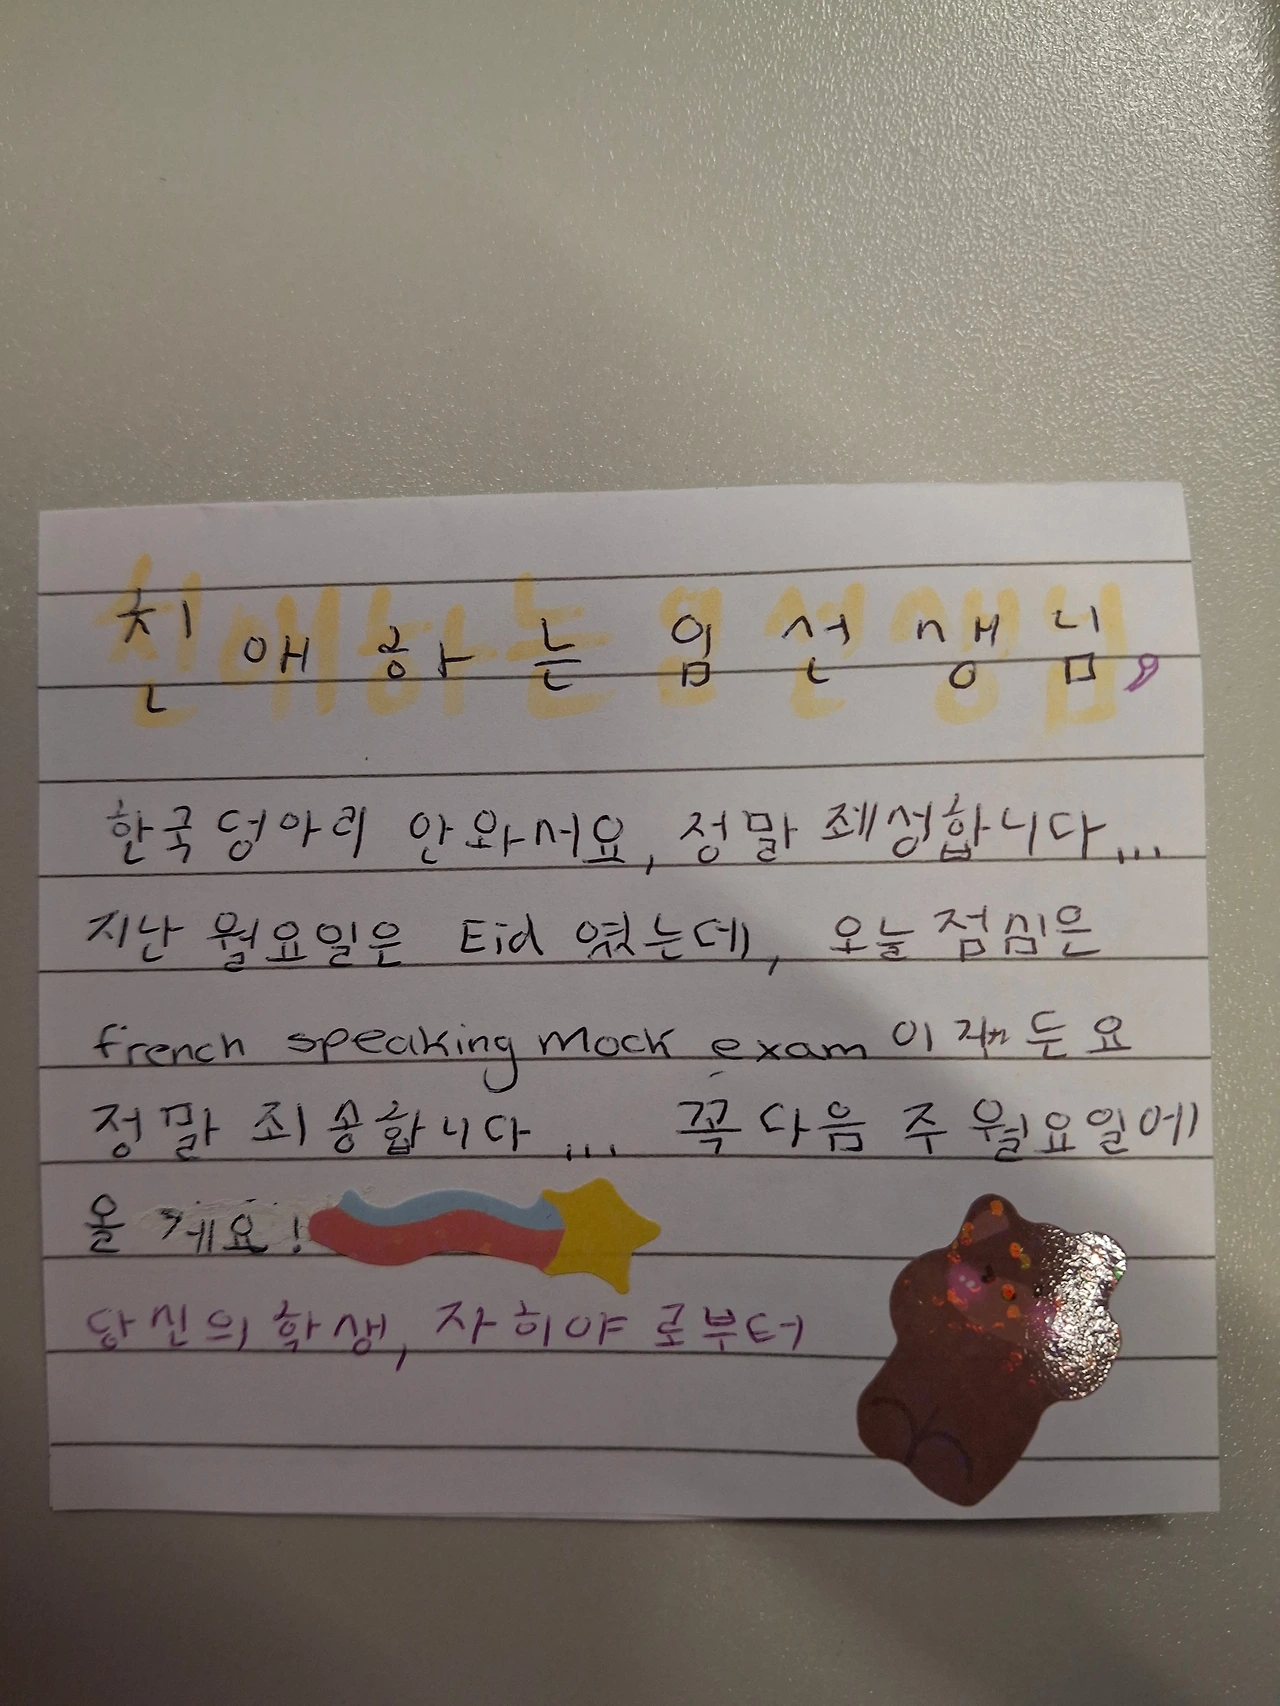 친애하는 임 선생님,
한국 덩아리 안와서요, 정말 졔성합니다...
지난 월요일은 Eid 였는데, 오늘 점심은
french speaking mock exam 이 둔요
정말 죄송합니다 ... 꼭 다음 주 월요일에
올 게요!
당신의 학생, 자히야 로부터